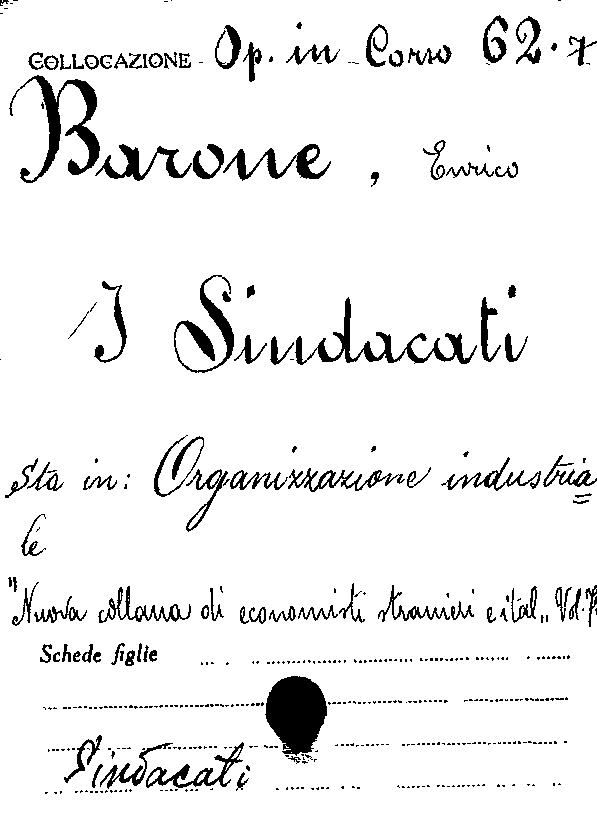 COLLOCAZIONE - Op. in Corso 62.7
Barone, Enrico
I Sindacati
Sta in: Organizzazione industria=
le
"Nuova collana di economisti stranieri e ital„ Vol. 7.
Schede figlie
Sindacati